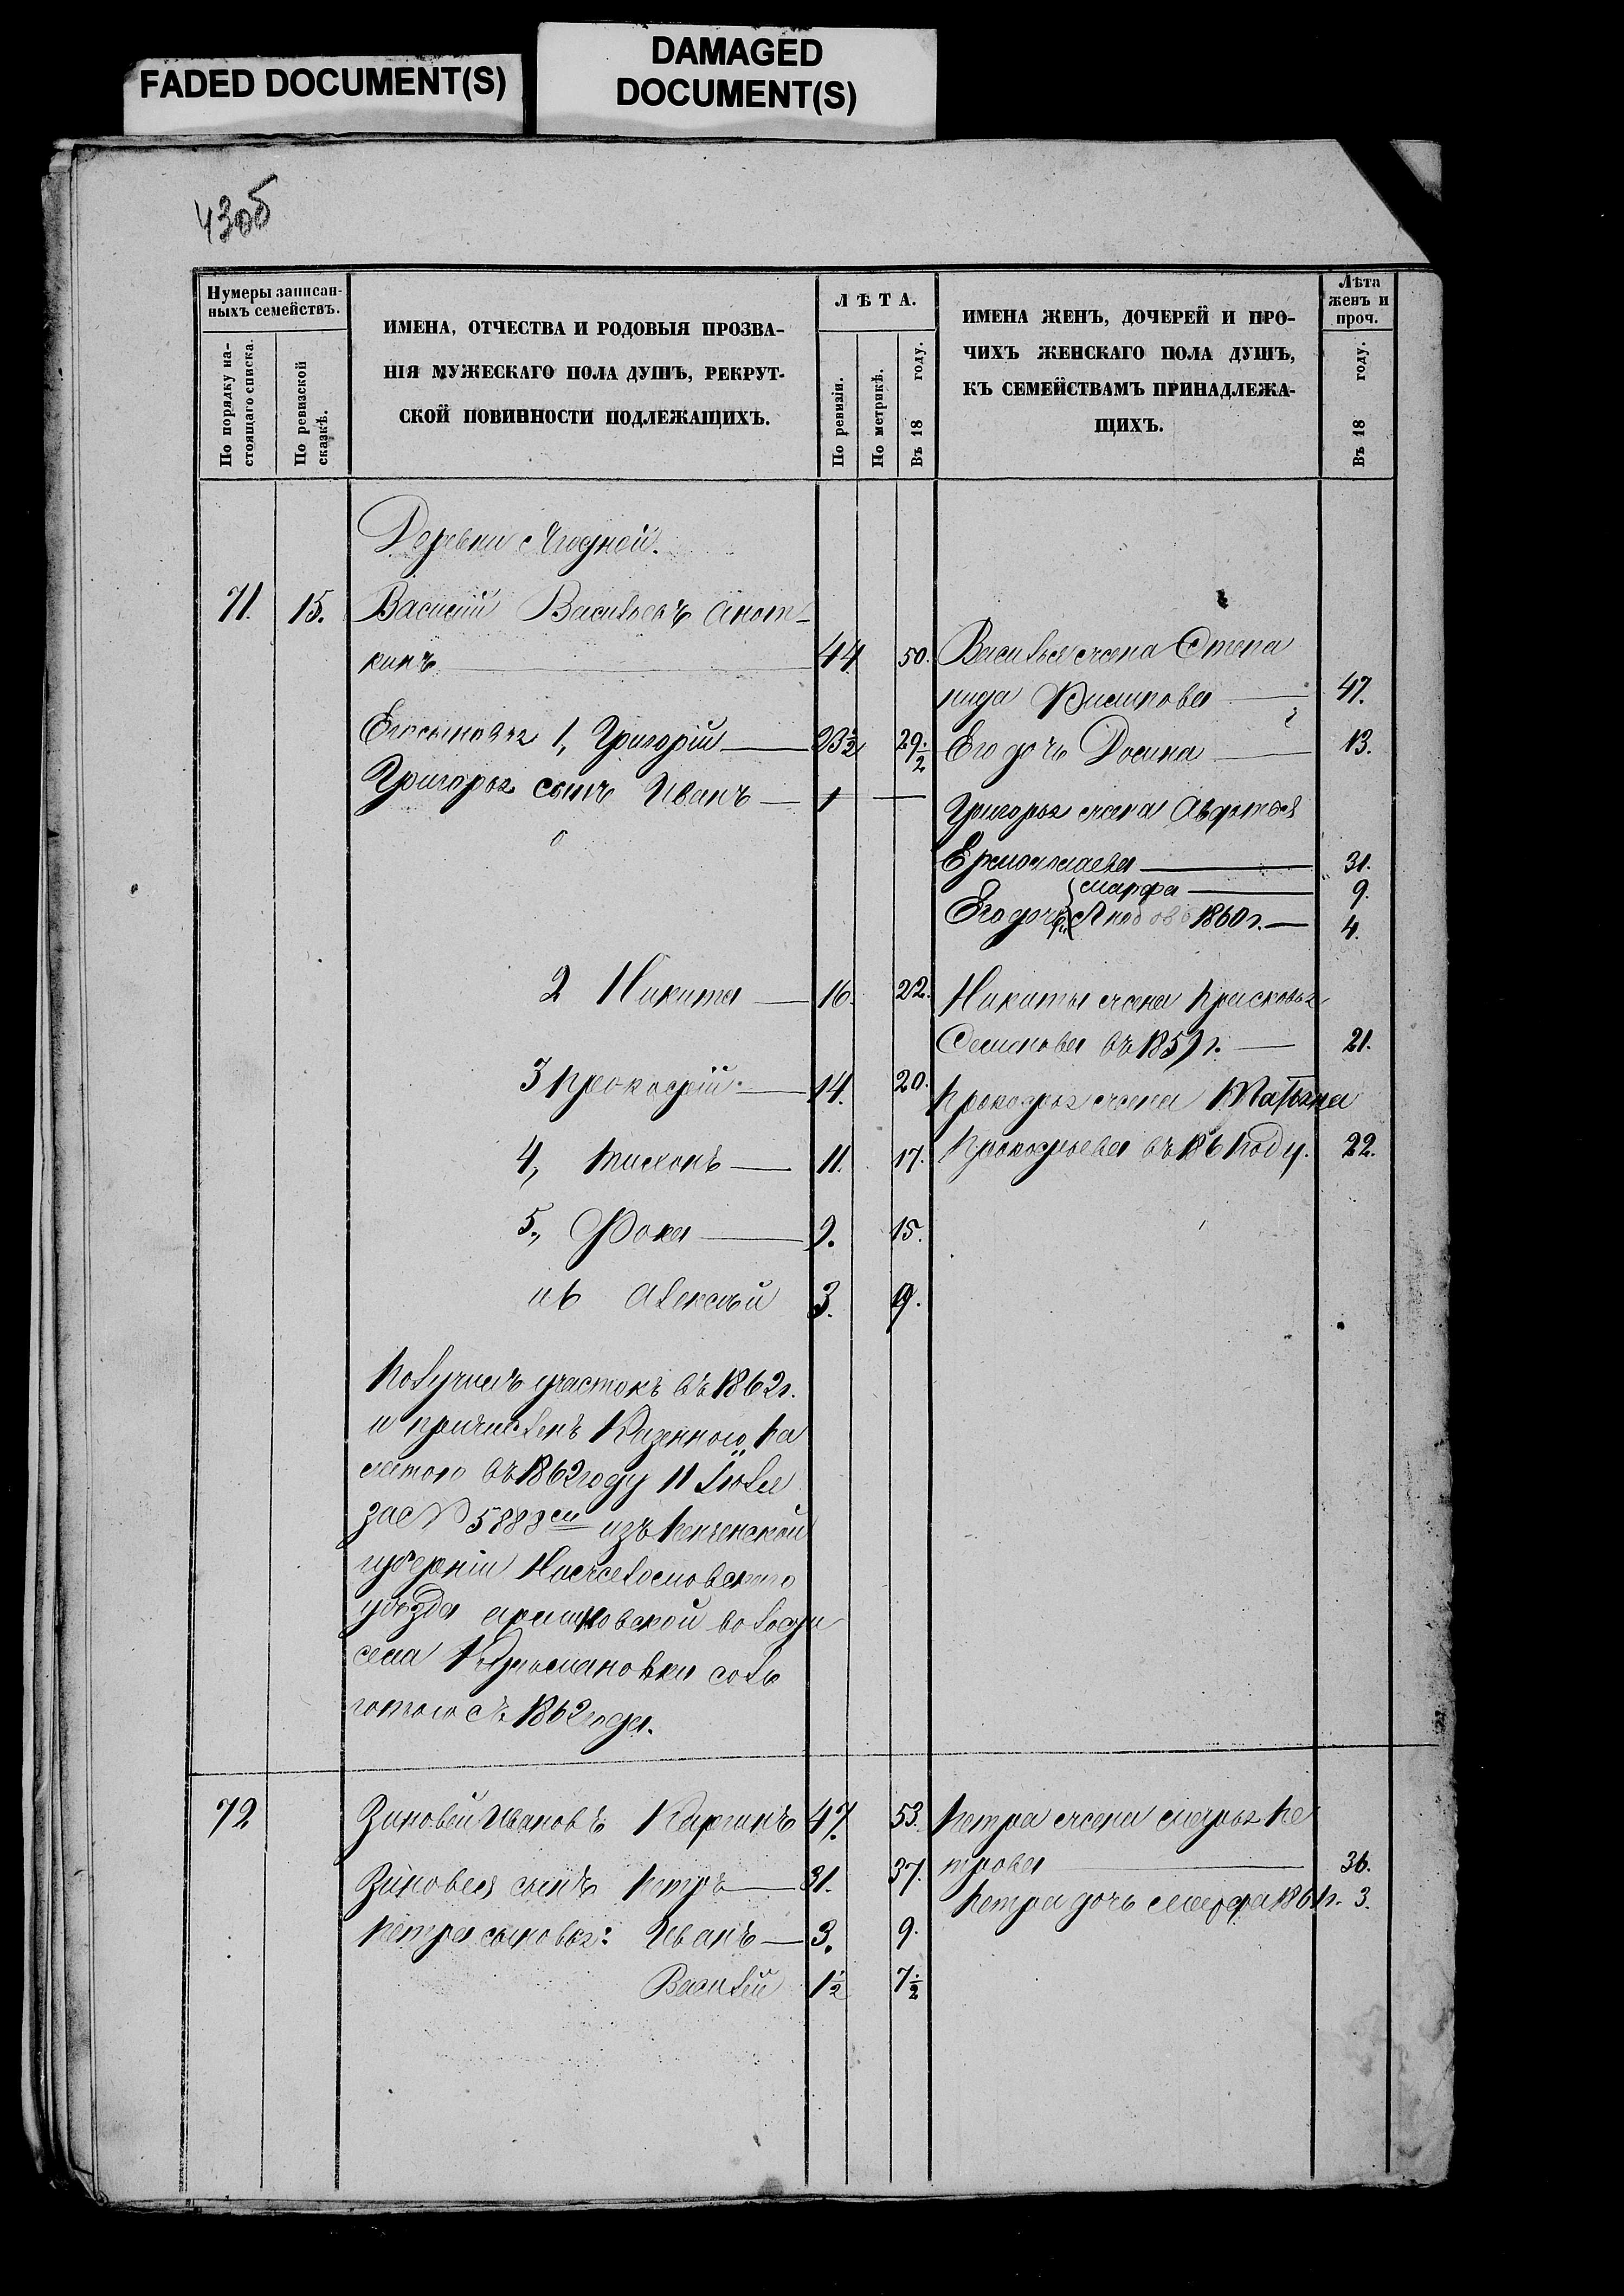 FADED DOCUMENT(S)
DAMAGED
DOCUMENT(S)
430б
Нумеры записан-
ныхъ семействъ.
По порядку на-
стоящаго списка.
По ревизской
сказкѣ.
ИМЕНА, ОТЧЕСТВА И РОДОВЫЯ ПРОЗВА-
НІЯ МУЖЕСКАГО ПОЛА ДУШЪ, РЕКРУТ-
СКОЙ ПОВИННОСТИ ПОДЛЕЖАЩИХЪ.
ЛѢТА.
По ревизіи.
По метрикѣ.
Въ 18 году.
ИМЕНА ЖЕНЪ, ДОЧЕРЕЙ И ПРО-
ЧИХЪ ЖЕНСКАГО ПОЛА ДУШЪ,
КЪ СЕМЕЙСТВАМЪ ПРИНАДЛЕЖА-
ЩИХЪ.
Лѣта
женъ и
проч.
Въ 18 году.
Деревни Ягодной.
71. 15. Василій Васильевъ Анот-
кинъ 44 50. Василья жена Степа
нида Филипова 47.
Его сыновья 1, Григорій 23½ 29½ Его дочь 13.
Григорья сынъ Иванъ 1 — Григорья жена Авдотья
Ермолаева 31.
Марфа 9.
Его дочери 1860 г. 4.
2 Никита 16. 22. Никиты жена Прасковья
Семенова въ 1859 г. 21.
3 Прокофій 14. 20. Прокофья жена Татьяна
Прокофьева въ 1861 году. 22.
4, Тихонъ 11. 17.
5., Фока 9. 15.
и 6 Алексѣй 3. 9.
Получилъ участокъ въ 1862 г.
и причисленъ Казенною Па
латою въ 1862 году 11 Іюля
за № 5888 изъ Пензенской
губерніи Нижнеломовского
уѣзда волости
села съ ль
готою съ 1862 года.
72 Зиновей Ивановъ Каргинъ 47. 53. Петра жена Марья Пе
трова 36.
Зиновея сынъ Петръ 31. 37.
Петра дочь Марфа 1861 г. 3.
Петра сыновья: Иванъ 3. 9.
Василей 1½ 7½